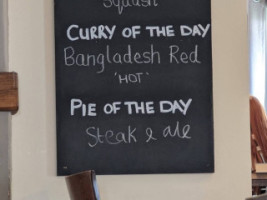 Squash
CURRY OF THE DAY
Bangladesh Red
'HOT'
PIE OF THE DAY
Steak & ale